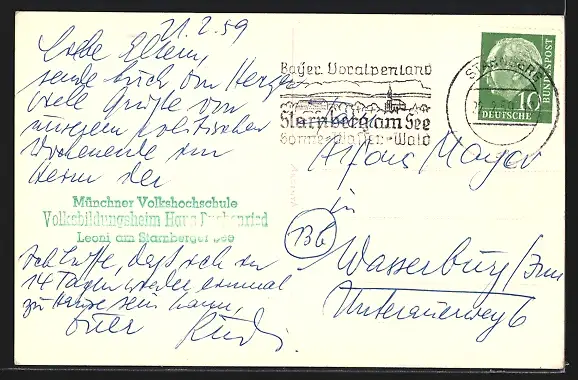 21.2.59
Liebe Eltern,
sende Euch von Herzen
viele Grüße von
unserem politischen
Wochenende im
Heim der
Münchner Volkshochschule
Volksbildungsheim Haus Buchenried
Leoni am Starnberger See
Ich hoffe, daß ich in
14 Tagen wieder einmal
zu Hause sein kann,
Euer Rudi
Bayer. Voralpenland
Starnberg am See
Sonne-Wasser-Wald
STARNBERG
10
DEUTSCHE
BUNDESPOST
Alfons Mayer
in
13b
Wasserburg/Inn
Unterauerweg 6